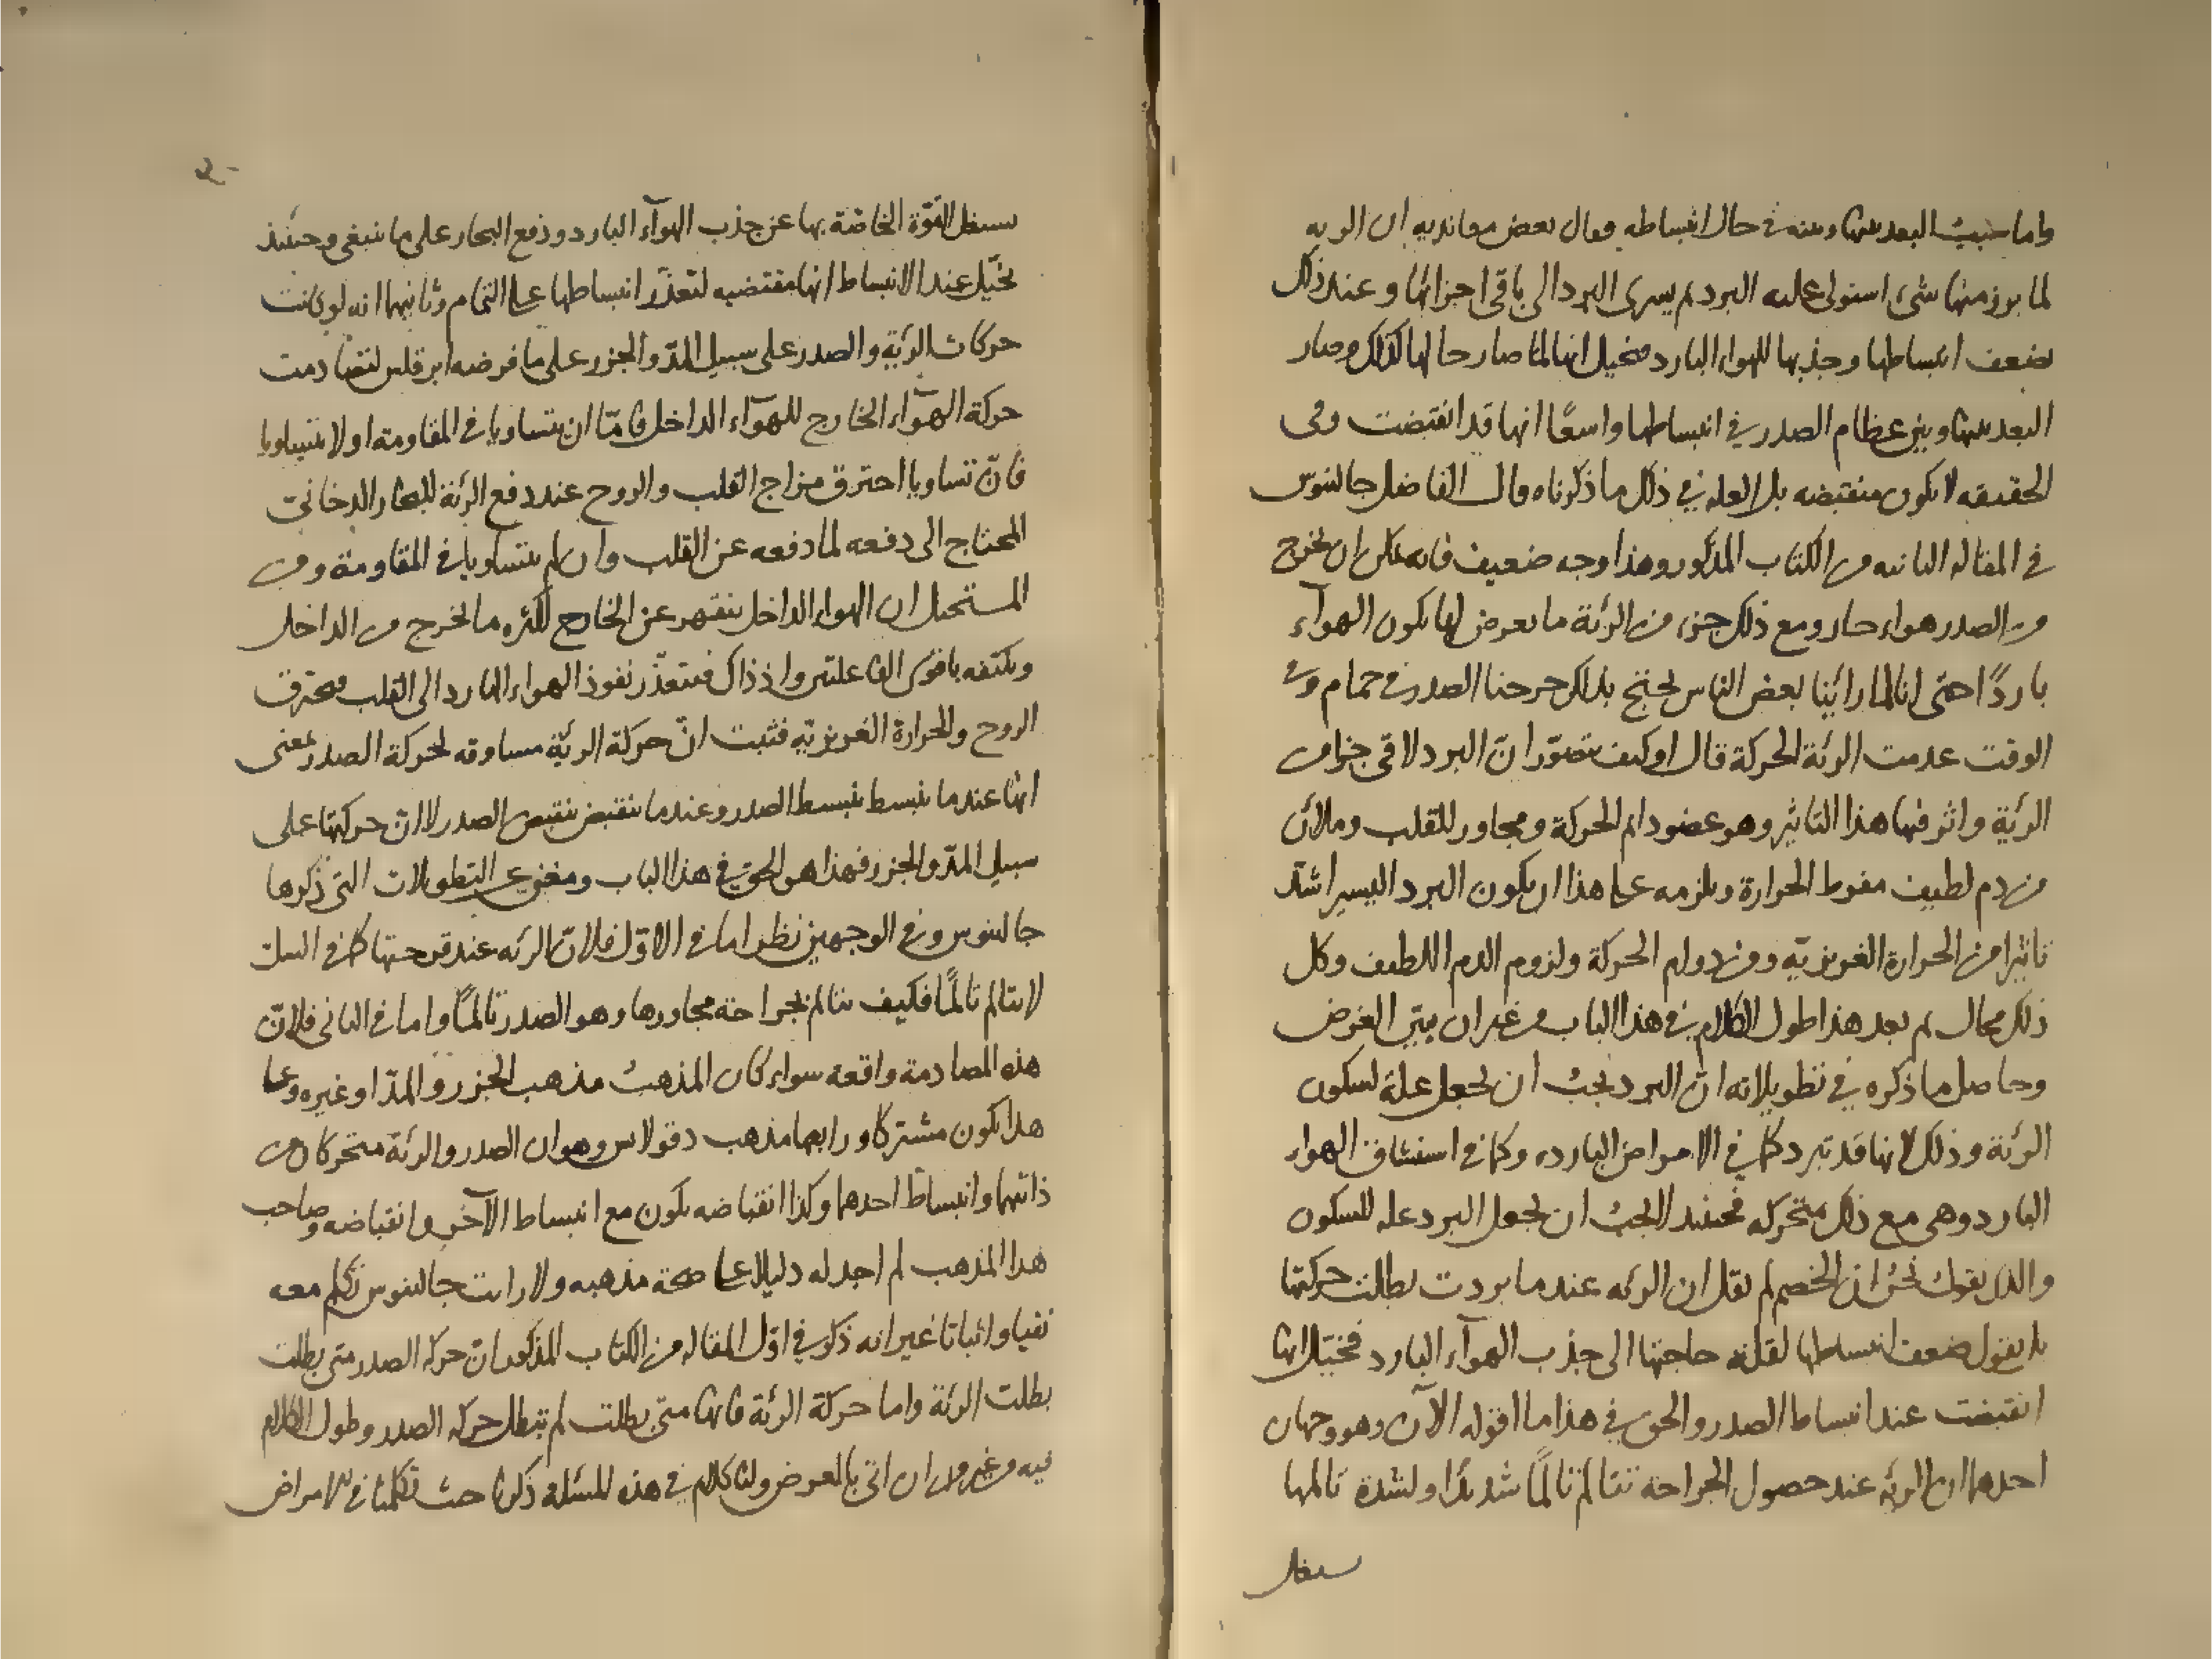 واما سبب البعد بينها وبينه في حال انبساطه فقال بعض معانديه ان الريه
لما برز منها شىء استولى عليه البرد ثم يسرى البرد الى باقى اجزائها وعند ذلك
يضعف انبساطها وجذبها للهواء البارد فتخيل انها لما صار حالها كذلك وصار
البعد بينها وبين عظام الصدر في انبساطها واسعًا انها قد انقبضت وفى
الحقيقه لا يكون منقبضه بل العله في ذلك ما ذكرناه وقال الفاضل جالينوس
في المقاله الثانيه من الكتاب المذكور وهذا وجه ضعيف فانه يمكن ان يخرج
من الصدر هواء حار ومع ذلك جزء من الرئة ما يعرض لها يكون الهوآء
باردًا حتى انا لما رأينا بعض الناس يحتج بذلك جرحنا الصدر في حمام وفي
الوقت عدمت الرئة الحركة قال او كيف يتصوّر انّ البرد لاقى جزا من
الرئة واثر فيها هذا التاثير وهو عضو دائم الحركة ومجاور للقلب وملآن
من دم لطيف مفرط الحرارة ويلزمه على هذا ان يكون البرد اليسير اشدّ
تاثيرا من الحرارة الغريزيّة ومن دوام الحركة ولزوم الدم اللطيف وكل
ذلك محال ثم بعد هذا طول الكلام في هذا الباب من غير ان يبيّن الغرض
وحاصل ما ذكره في تطويلاته انّ البرد يجب ان يجعل علة لسكون
الرئة وذلك لانها قد تبرد كما في الامراض البارده وكما في استنشاق الهواء
البارد وهى مع ذلك متحركه فحينئذ لا يجب ان يجعل البرد عله للسكون
والذى نقوله نحن ان الخصم لم يقل ان الرئه عندما بردت بطلت حركتها
بل يقول ضعف انبساطها لقلة حاجتها الى جذب الهوآء البارد فتخيّل انها
انقبضت عند انبساط الصدر والحق في هذا ما اقوله الآن وهو وجهان
احدهما ان الرئه عند حصول الجراحة تتالم تالمًا شديدًا ولشدة تالمها
سىغل القوّة الخاصّة بها عن جذب الهوآء البارد ودفع البخار على ما ينبغى وحينئذ
يخيّل عند الانبساط انها منقبضه لتعذّر انبساطها على التمام وثانيهما انه لو كانت
حركات الرئة والصدر على سبيل المدّ والجزر على ما فرضه ابرقلس لتصادمت
حركة الهوآء الخارج للهوآء الداخل فامّا ان يتساويا في المقاومة او لا يتساويا
فان تساويا احترق مزاج القلب والروح عند دفع الرئة للبخار الدخانىّ
المحتاج الى دفعه لما دفعه عن القلب وان لم يتساويا في المقاومة ومن
المستحيل ان الهواء الداخل ينقهر عن الخارج لكثره ما يخرج من الداخل
ويكتفه باقوى الفاعلتين واذ ذاك فيتعذّر نفوذ الهواء البارد الى القلب فيحترق
الروح والحرارة الغريزيّة فثبت انّ حركة الرئة مساوقه لحركة الصدر بمعنى
انها عندما ينبسط ينبسط الصدر وعندما ينقبض ينقبض الصدر لا انّ حركتها على
سبيل المدّ والجزر فهذا هو الحق في هذا الباب ومغنٍ عن التطويلات التى ذكرها
جالينوس وفي الوجهين نظر اما في الاوّل فلانّ الرئه عند قرحتها كما في السل
لا يتالم تالمًا فكيف تتالم بجراحة مجاورها وهو الصدر تالمًا واما في الثانى فلانّ
هذه المصادمة واقعه سواء كان المذهب مذهب الجزر والمدّ او غيره وعلى
هذا يكون مشتركا ورابعها مذهب دقولاس وهو ان الصدر والرئة متحركان من
ذاتهما وانبساط احدهما وكذا انقباضه يكون مع انبساط الآخر وانقباضه وصاحب
هذا المذهب لم اجد له دليلا على صحة مذهبه ولا رايت جالينوس تكلم معه
نفيا واثباتا غير انه ذكر في اوّل المقاله من الكتاب المذكور انّ حركه الصدر متى بطلت
بطلت الرئة واما حركة الرئة فانها متى بطلت لم تبطل حركه الصدر وطول الكلام
فيه من غير ان اتى بالغرض ولنا كلام في هذه المسئلة ذكرناه حيث تكلمنا في الامراض